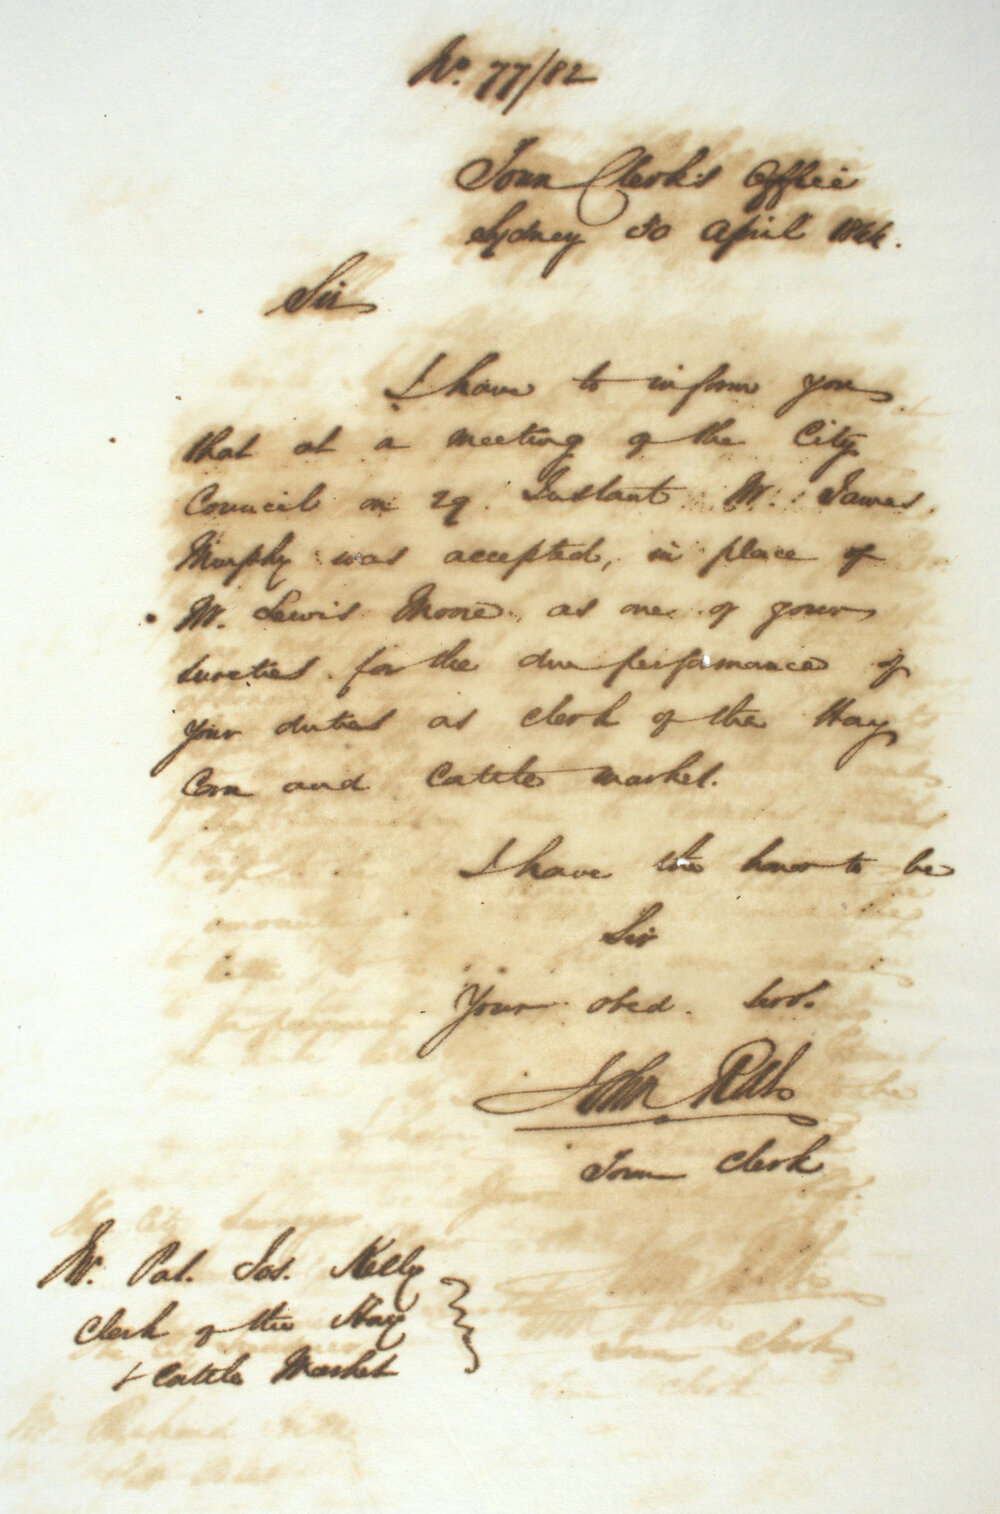 No. 77/82
Town Clerk's Office
Sydney 30 April 1844.
Sir
I have to inform you
that at a meeting of the City
Council on 29. Instant Mr. James
Murphy was accepted, in place of
Mr. Lewis Moore as one of your
sureties for the due performance of
your duties as clerk of the Hay
Corn and Cattle market.
I have the honor to be
Sir
Your obed. Servt.
John Rae
Town Clerk
Mr. Pat. Jos. Kelly
Clerk of the Hay
& Cattle Market